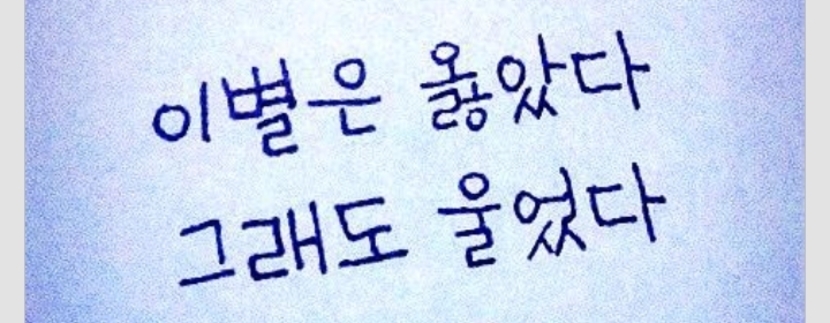 이별은 옳았다
그래도 울었다